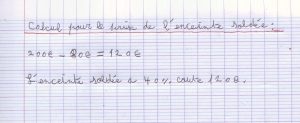 Calcul pour le prix de l'enceinte soldée :
200€ - 80€ = 120€
L'enceinte soldée à 40% coute 120€.